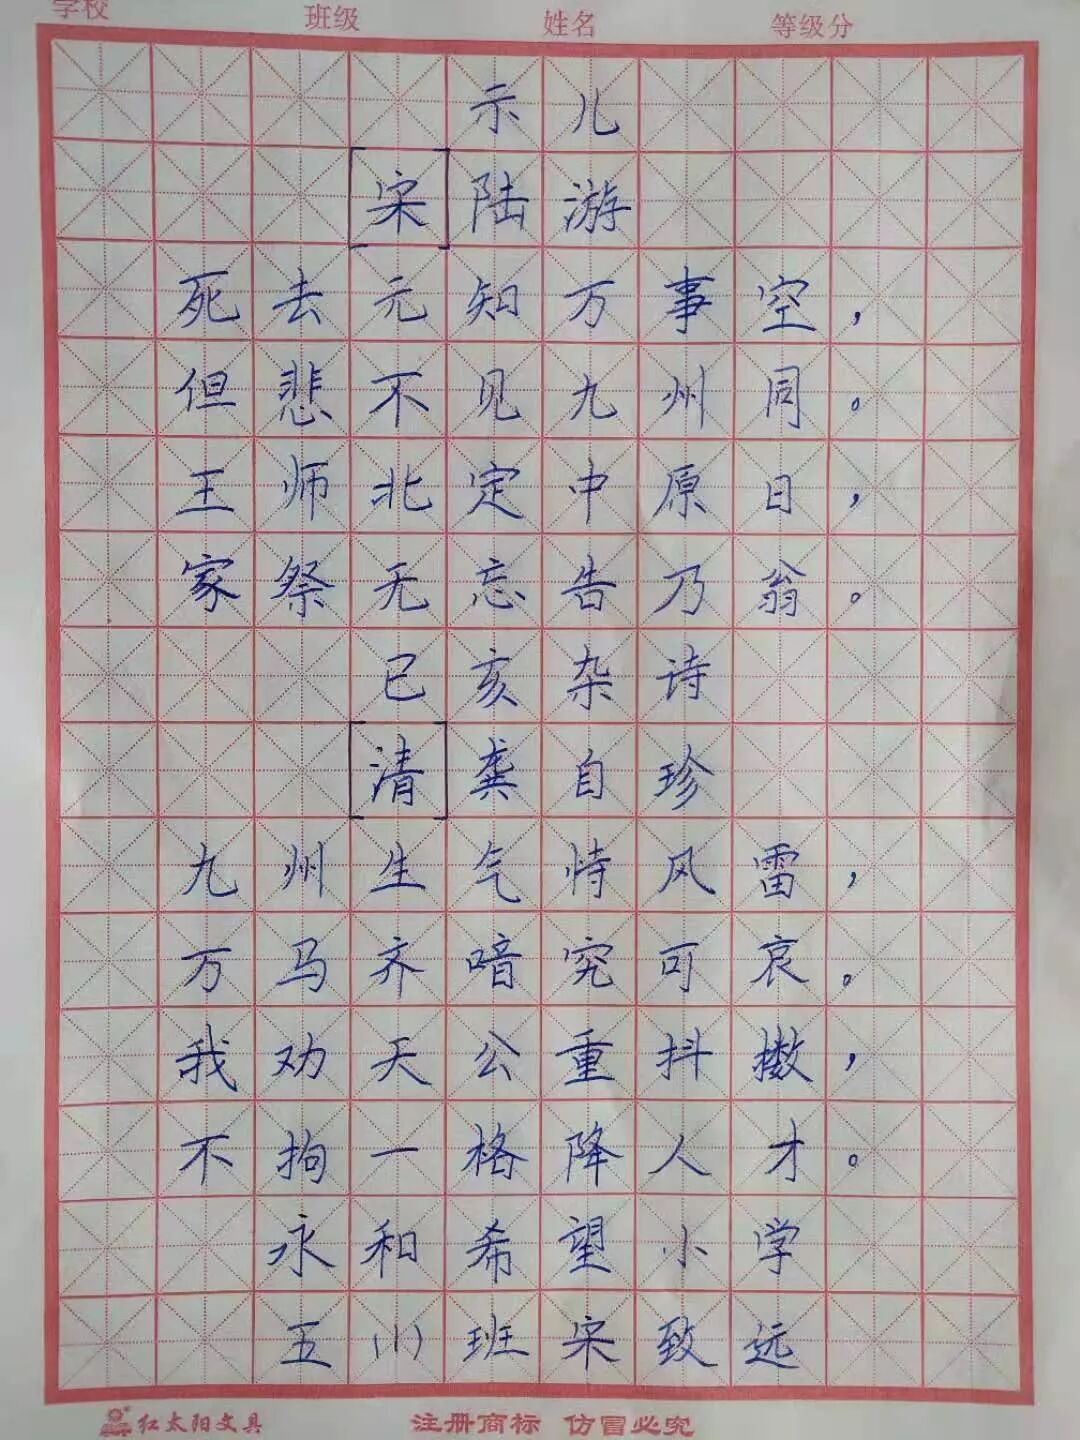 学校 班级 姓名 等级分
示儿
[宋]陆游
死去元知万事空，
但悲不见九州同。
王师北定中原日，
家祭无忘告乃翁。
已亥杂诗
[清]龚自珍
九州生气恃风雷，
万马齐喑究可哀。
我劝天公重抖擞，
不拘一格降人才。
永和希望小学
五(1)班宋致远
红太阳文具 注册商标 仿冒必究